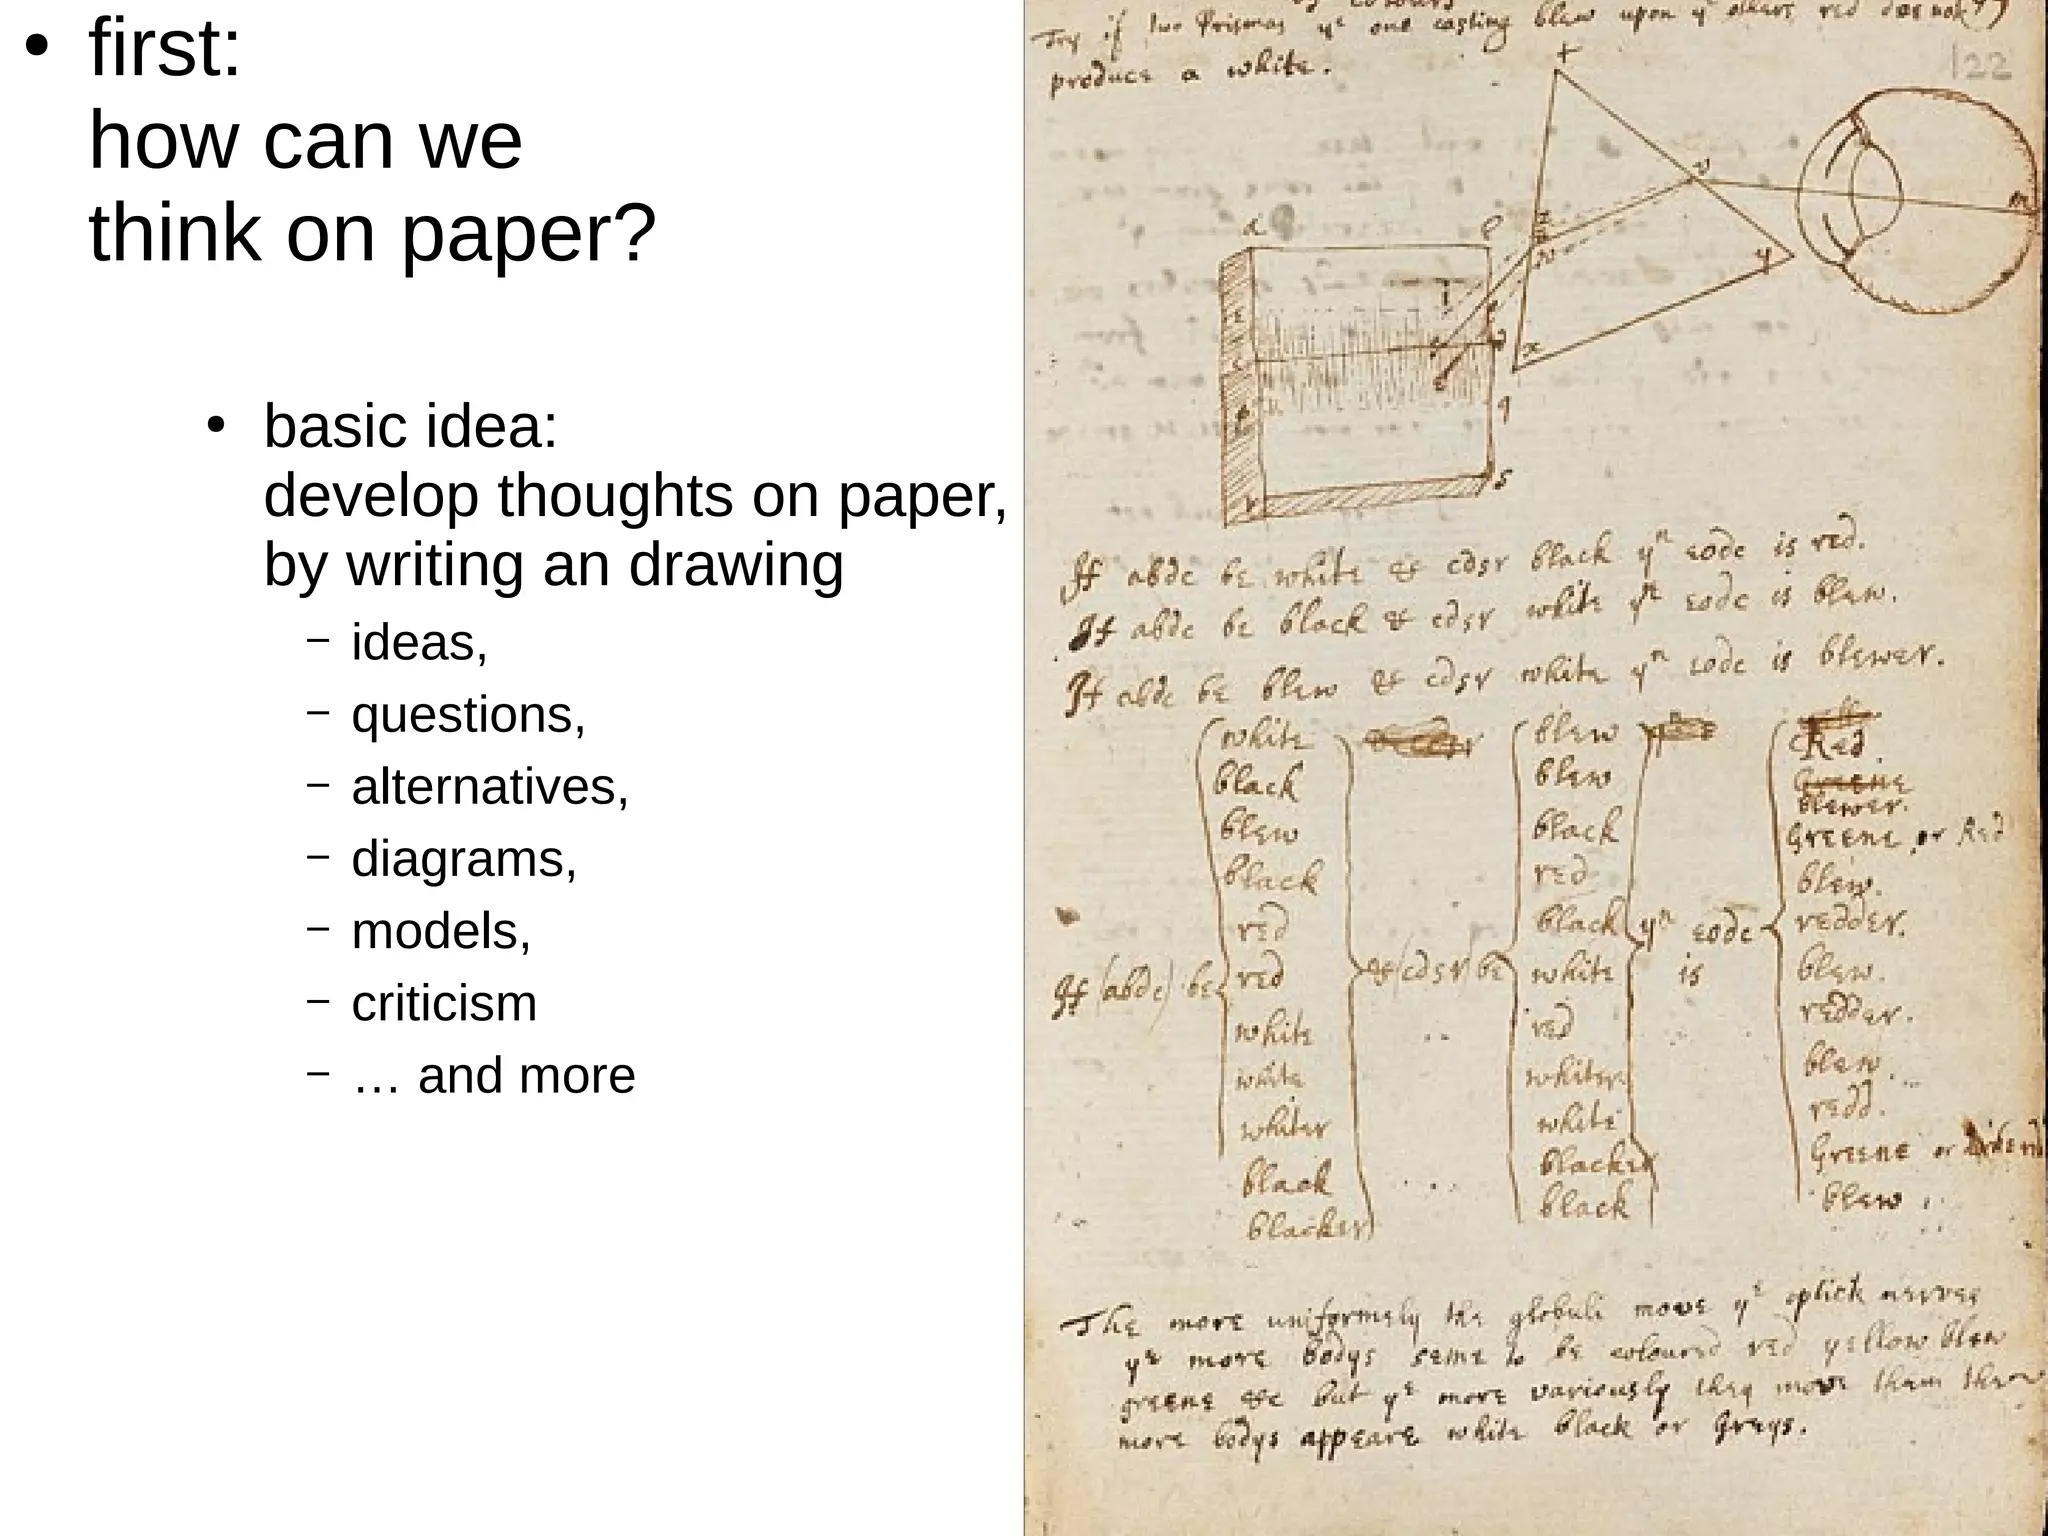 • first:
how can we
think on paper?
• basic idea:
develop thoughts on paper,
by writing an drawing
– ideas,
– questions,
– alternatives,
– diagrams,
– models,
– criticism
– … and more
of colours
Try if two Prismas yᵉ one casting blew upon yᵉ others red doe not
produce a white.
122
If abdc be white & cdsr black yⁿ eodc is red.
If abdc be black & cdsr white yⁿ eodc is blew.
If abdc be blew & cdsr white yⁿ eodc is blewer.
white blew Red.
black blew Greene
blewer.
blew black Greene or Red
black red blew.
red black yⁿ eodc redder.
If (abdc) be red & (cdsr) be white is blew.
white red redder.
white whiter blew.
whiter white redd.
black blacker Greene or
blacker black blew
The more uniformely the globuli move yᵉ optick nerves
yᵉ more bodys seme to be coloured red yellow blew
greene &c but yᵉ more variously they move them the
more bodys appeare white black or Greys.